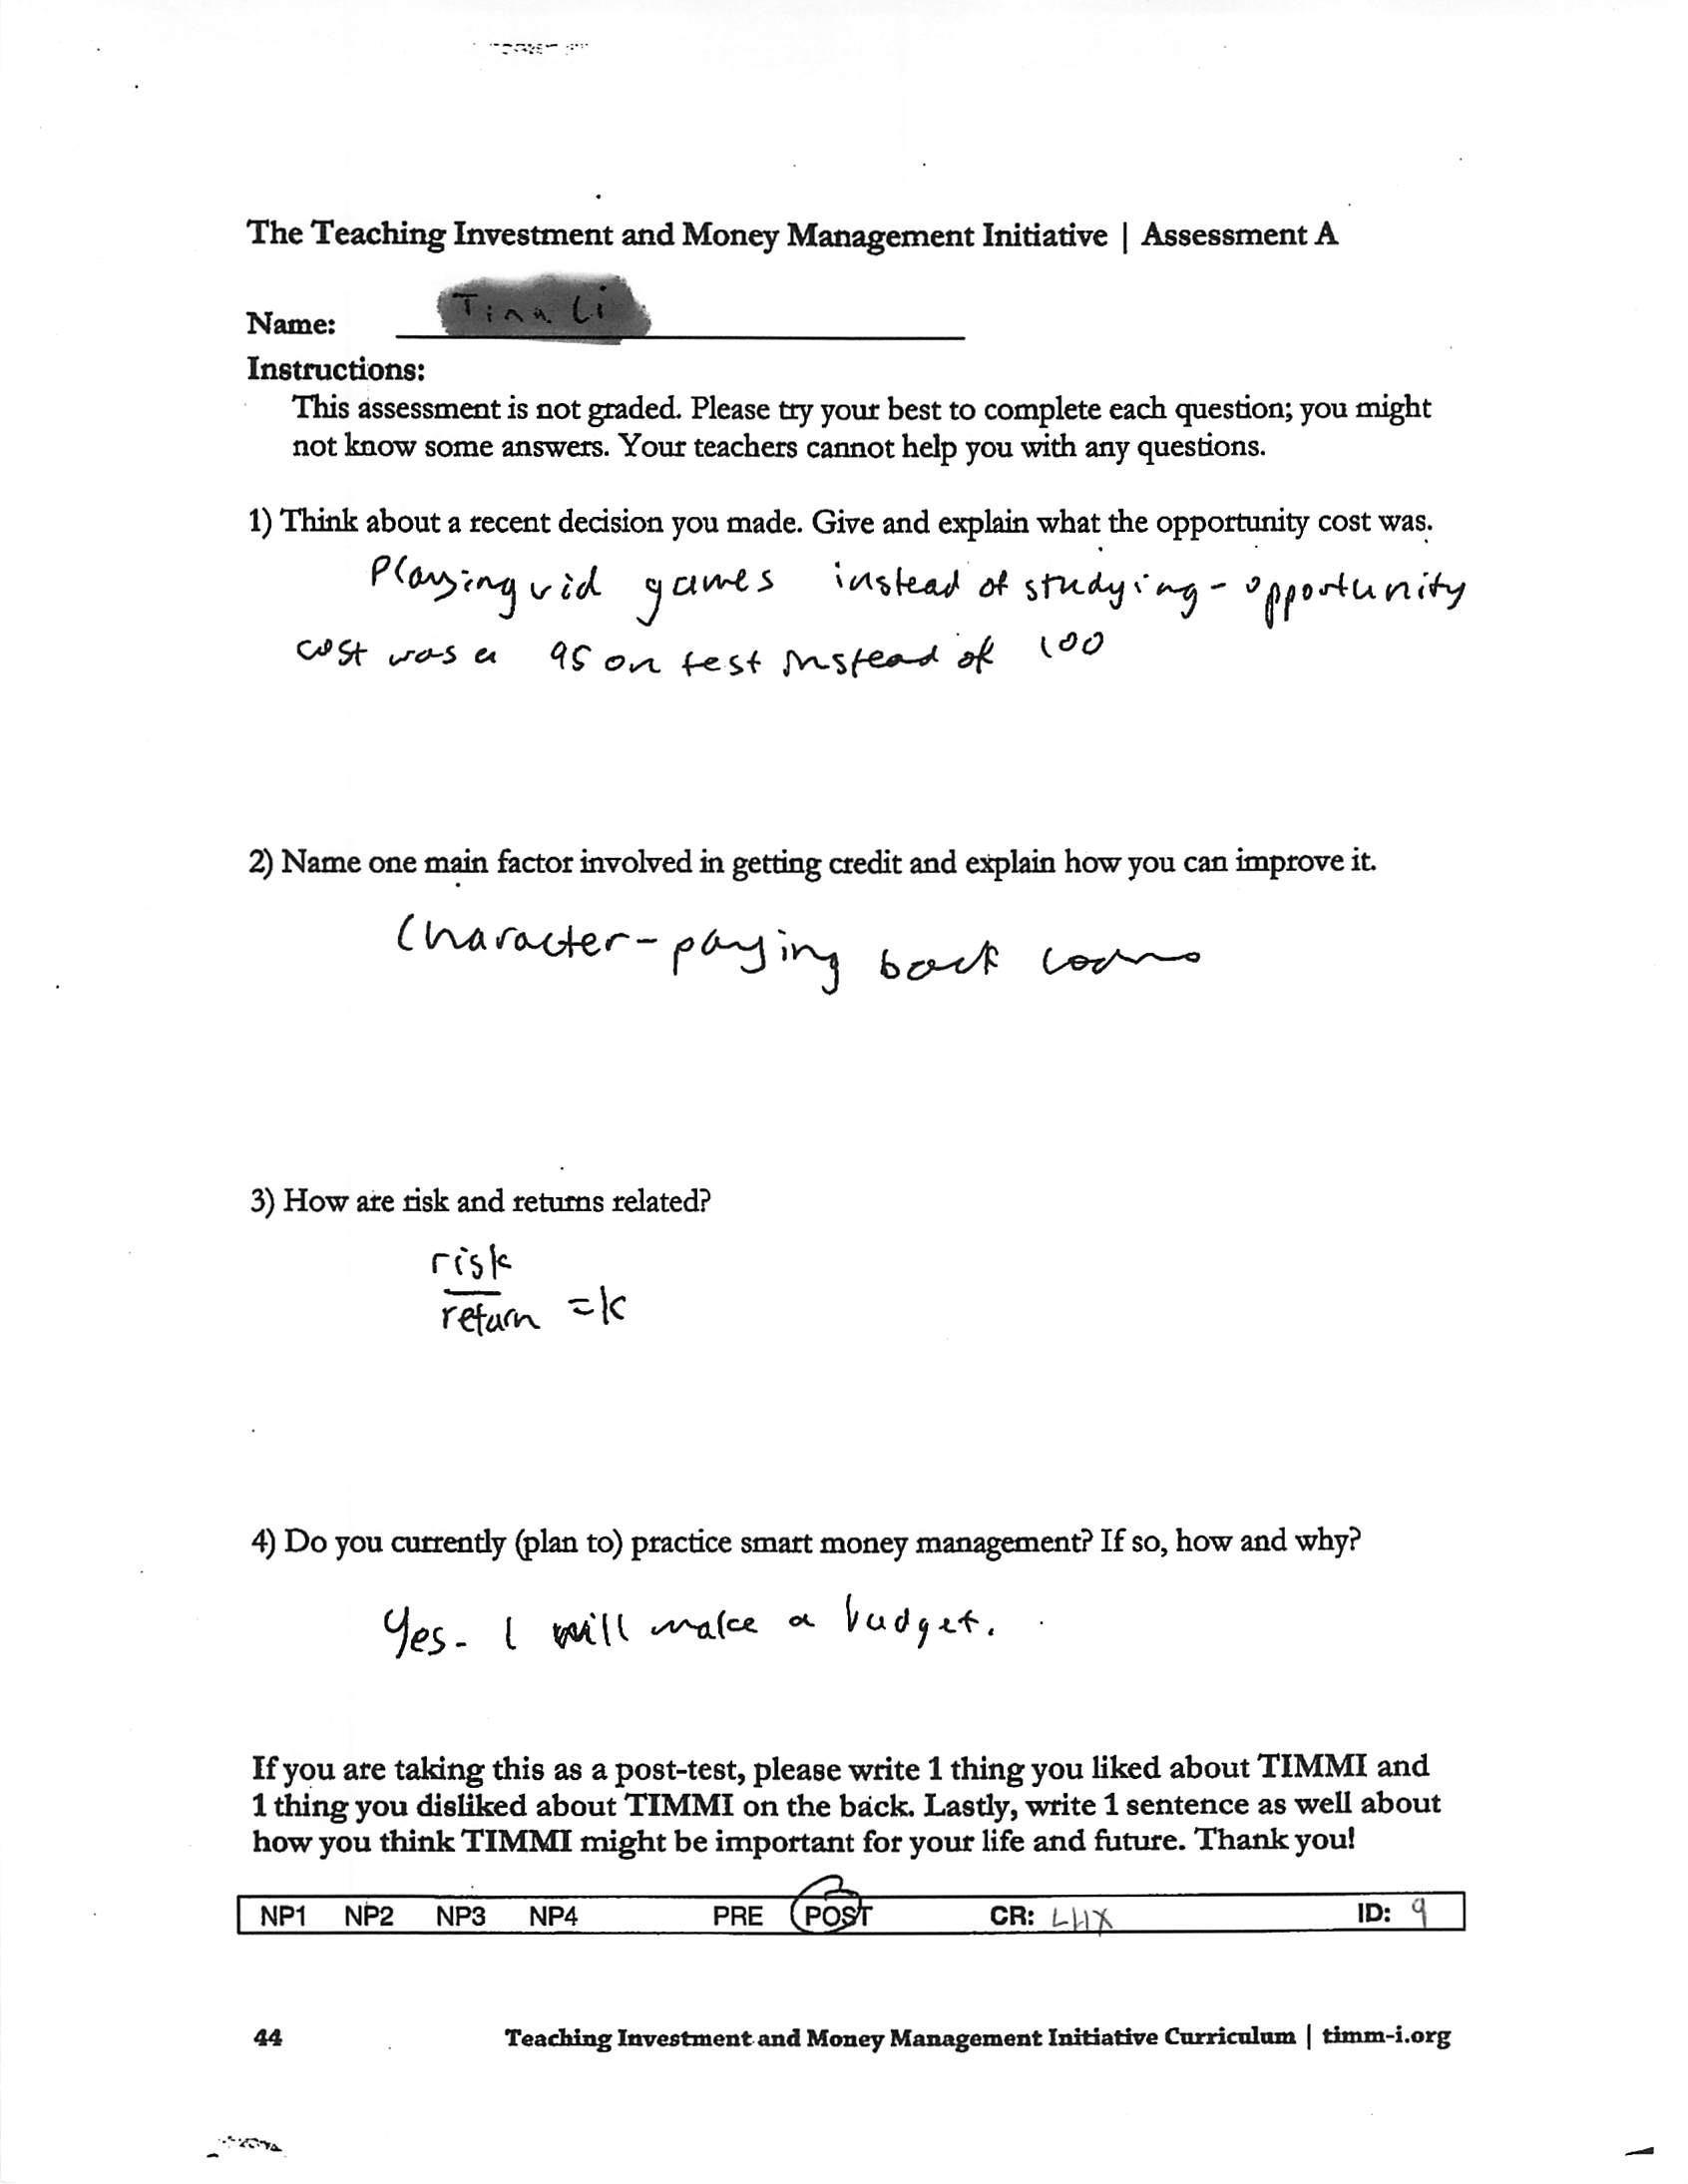 The Teaching Investment and Money Management Initiative | Assessment A
Name:
Instructions:
This assessment is not graded. Please try your best to complete each question; you might
not know some answers. Your teachers cannot help you with any questions.
1) Think about a recent decision you made. Give and explain what the opportunity cost was.
Playing vid games instead of studying - opportunity
cost was a 95 on test instead of 100
2) Name one main factor involved in getting credit and explain how you can improve it.
Character - paying back loans
3) How are risk and returns related?
risk
return = k
4) Do you currently (plan to) practice smart money management? If so, how and why?
Yes - I will make a budget.
If you are taking this as a post-test, please write 1 thing you liked about TIMMI and
1 thing you disliked about TIMMI on the back. Lastly, write 1 sentence as well about
how you think TIMMI might be important for your life and future. Thank you!
NP1 NP2 NP3 NP4 PRE POST CR: ID: 9
44 Teaching Investment and Money Management Initiative Curriculum | timm-i.org